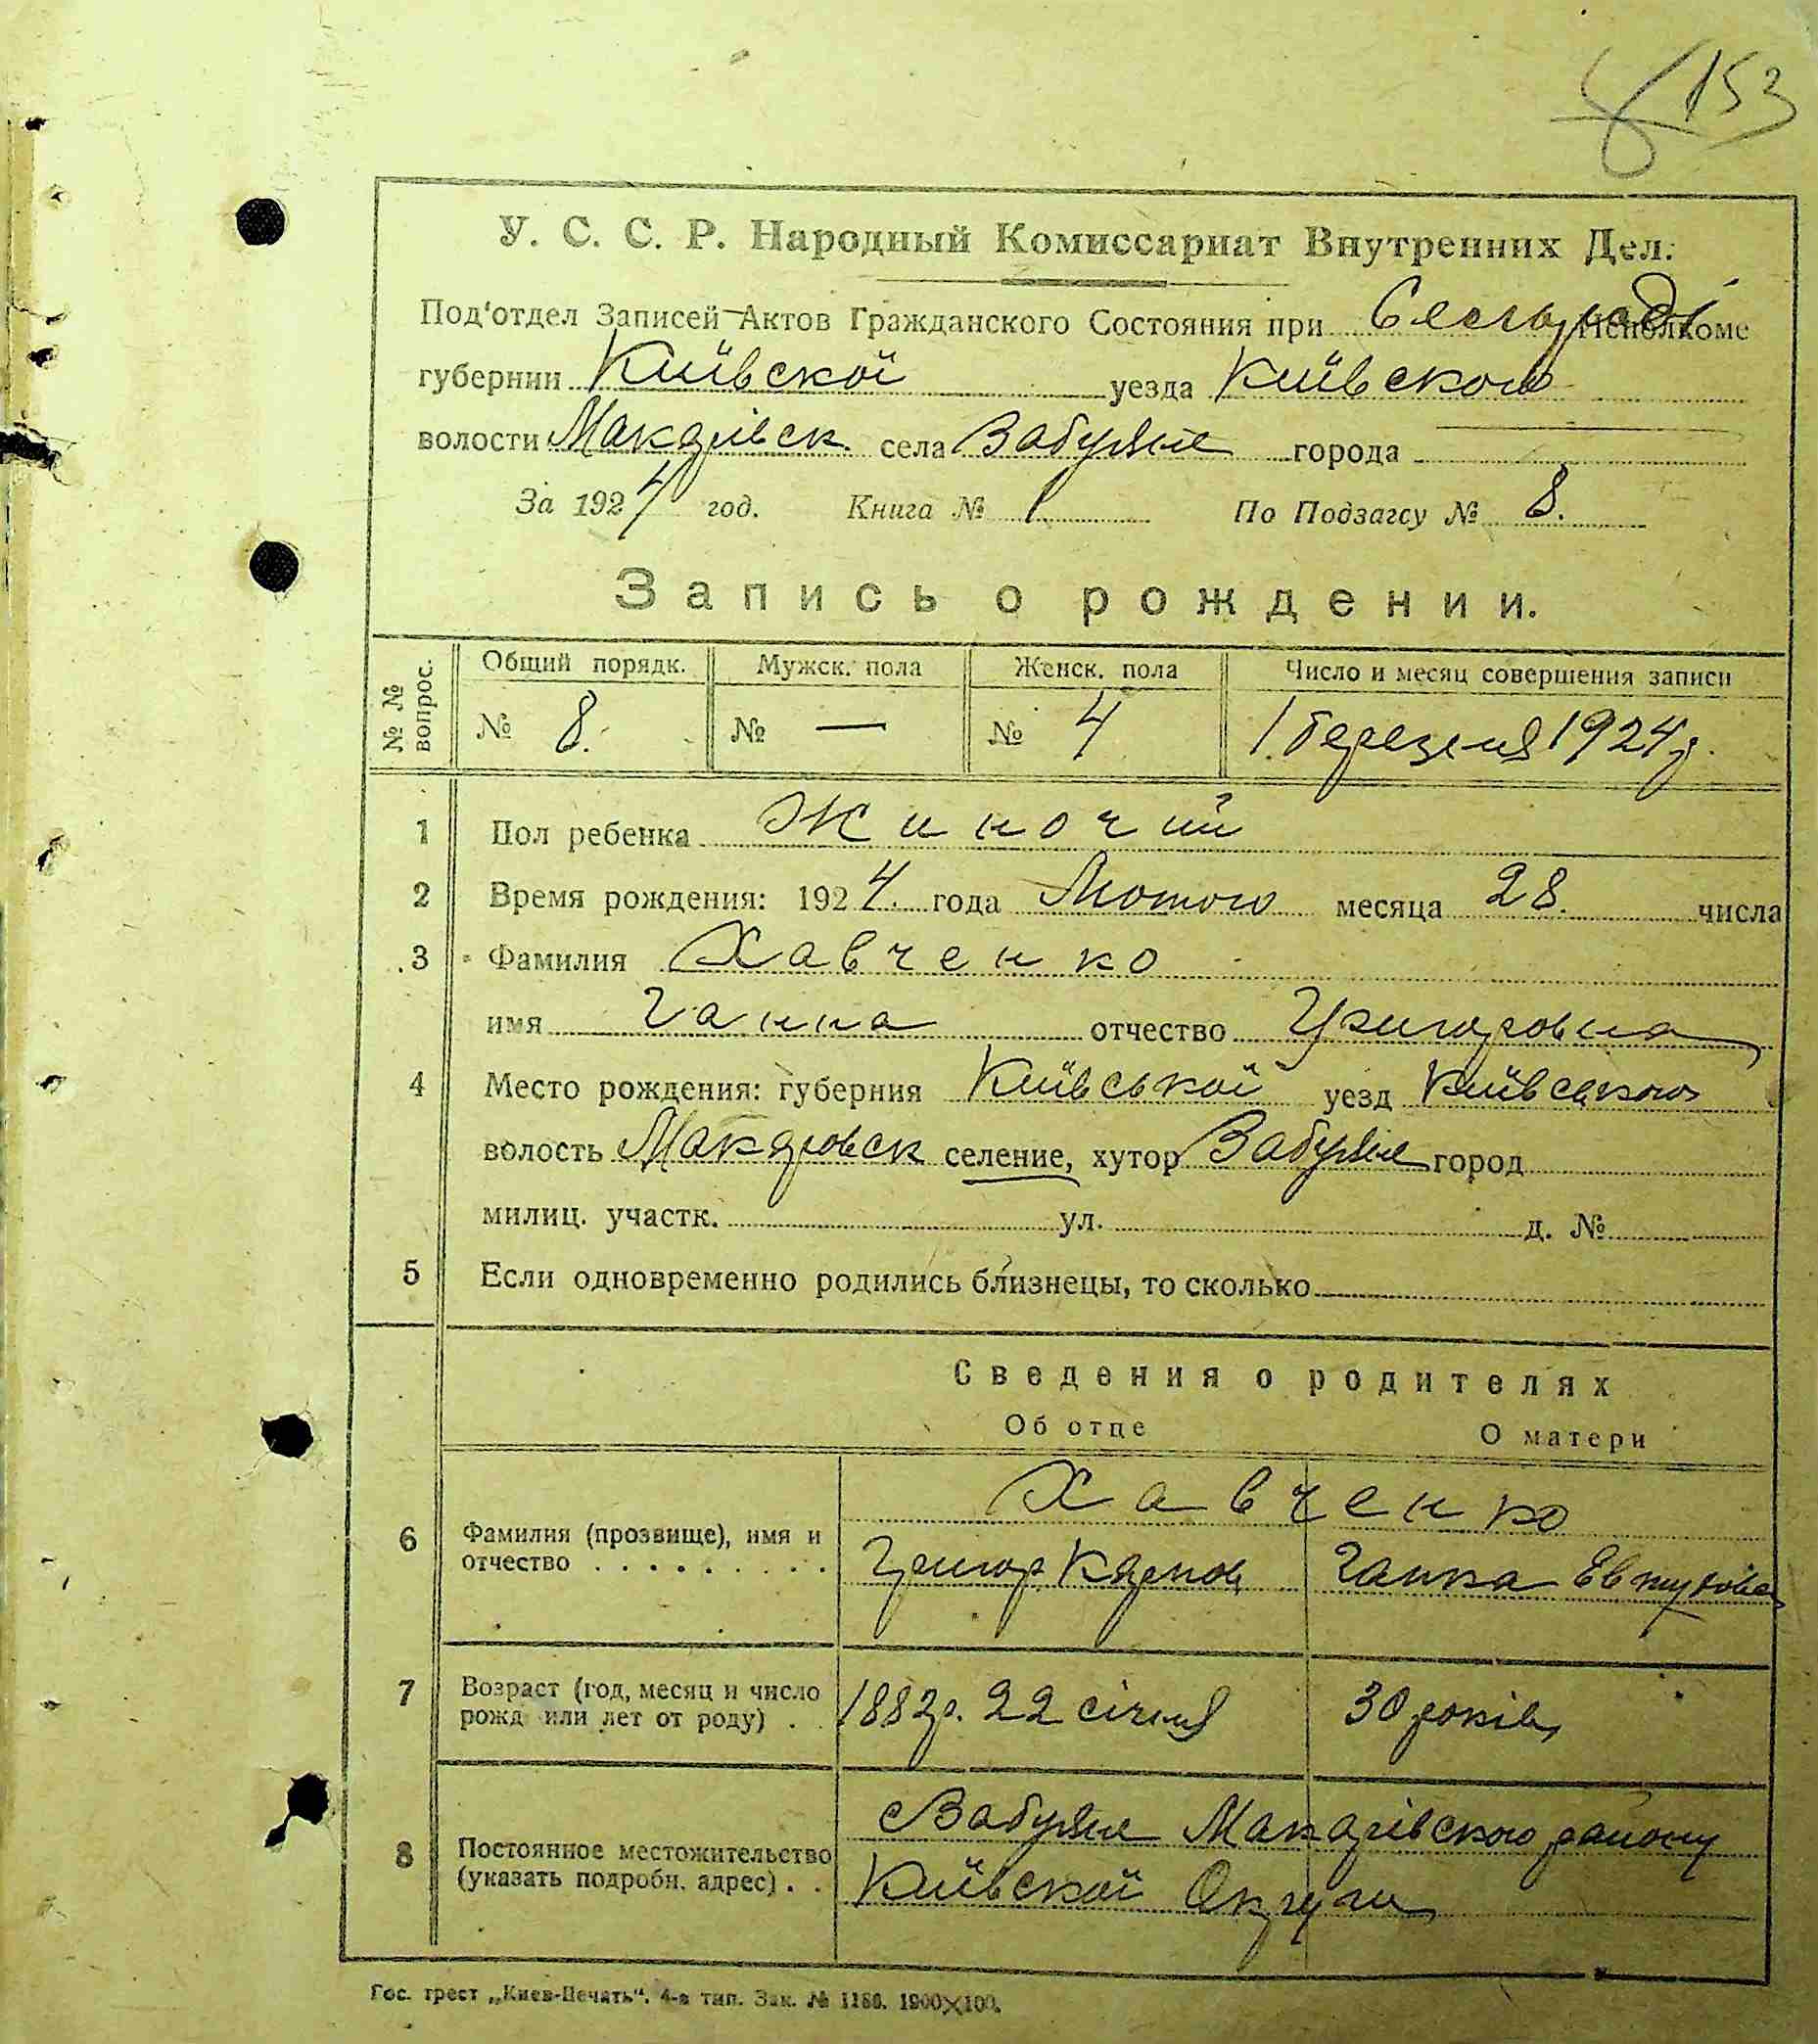 153
У. С. С. Р. Народный Комиссариат Внутренних Дел.
Под'отдел Записей Актов Гражданского Состояния при Сельраді Исполкоме
губернии Київскої уезда Київского
волости Макарівск. села Забуяне города
За 1924 год. Книга № 1 По Подзагсу № 8.
Запись о рождении.
№ № вопрос.
Общий порядк. Мужск. пола Женск. пола Число и месяц совершения записи
№ 8. № — № 4 1 березеня 1924 р.
1 Пол ребенка Жиночий
2 Время рождения: 1924. года Лютого месяца 28. числа
3 Фамилия Хавченко
имя Ганна отчество Григоровна
4 Место рождения: губерния Київської уезд Київського
волость Макаровск селение, хутор Забуяне город
милиц. участк. ул. д. №
5 Если одновременно родились близнецы, то сколько
Сведения о родителях
Об отце О матери
Хавченко
6 Фамилия (прозвище), имя и
отчество . . . . . . . . . Григор Карпов Ганна Евтухова
7 Возраст (год, месяц и число
рожд или лет от роду) . . 1882р. 22 січня 30 років
с Забуяне Макарівского району
8 Постоянное местожительство
(указать подробн. адрес) . . Київскої Округи
Гос. трест „Киев-Печать". 4-я тип. Зак. № 1186. 1900×100.